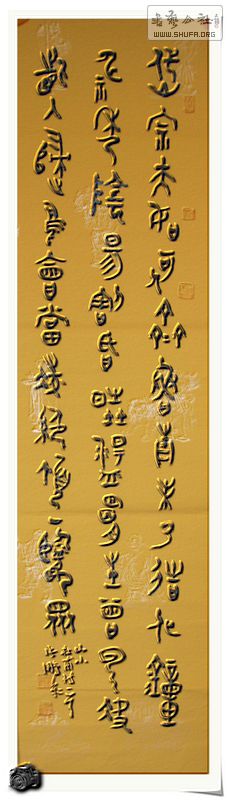 書藝公社
WWW.SHUFA.ORG
岱宗夫如何齊魯青未了造化鐘
神秀陰昜割昏曉盪胸生曾雲決
眥入歸鳥會當凌絕頂一覽眾
山小
杜甫詩一首